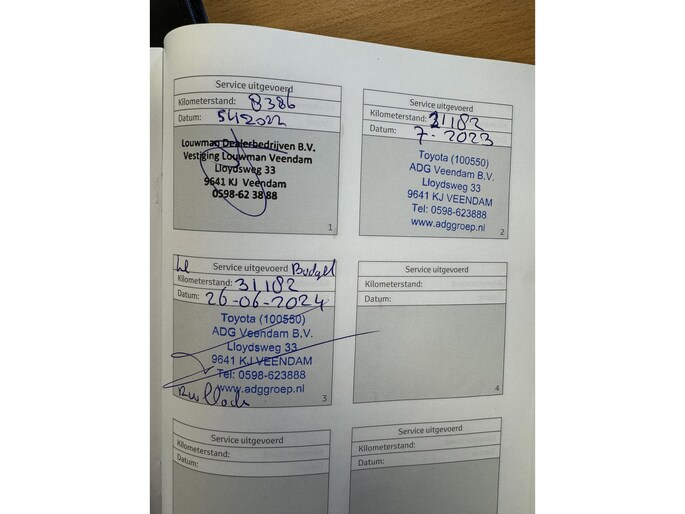 Service uitgevoerd
Kilometerstand: 8386
Datum: 5412022
Louwman Dealerbedrijven B.V.
Vestiging Louwman Veendam
Lloydsweg 33
9641 KJ Veendam
0598-62 38 88
1
Service uitgevoerd
Kilometerstand: 21182
Datum: 7-2023
Toyota (100550)
ADG Veendam B.V.
Lloydsweg 33
9641 KJ VEENDAM
Tel: 0598-623888
www.adggroep.nl
2
Service uitgevoerd Budget
Kilometerstand: 31182
Datum: 26-06-2024
Toyota (100550)
ADG Veendam B.V.
Lloydsweg 33
9641 KJ VEENDAM
Tel: 0598-623888
www.adggroep.nl
3
Service uitgevoerd
Kilometerstand:
Datum:
4
Service uitgevoerd
Kilometerstand:
Datum:
Service uitgevoerd
Kilometerstand:
Datum: